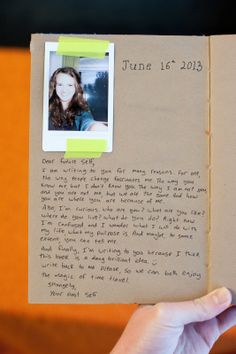 June 16th 2013
Dear future self,
I am writing to you for many reasons. For one,
the way people change fascinates me. The way you
know me but I don't know you. The way I am not you,
and you are not me, but we are the same and how
you are where you are because of me.
Also, I'm curious. Who are you? What are you like?
Where do you live? What do you do? Right now
I'm confused and I wonder what I will do with
my life, what my purpose is. And maybe, to some
extent, you can tell me.
And finally, I'm writing to you because I think
this book is a dang brilliant idea.
Write back to me please, so we can both enjoy
the magic of time travel.
Sincerely,
Your past self